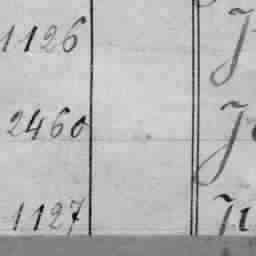 1126
2460
1127